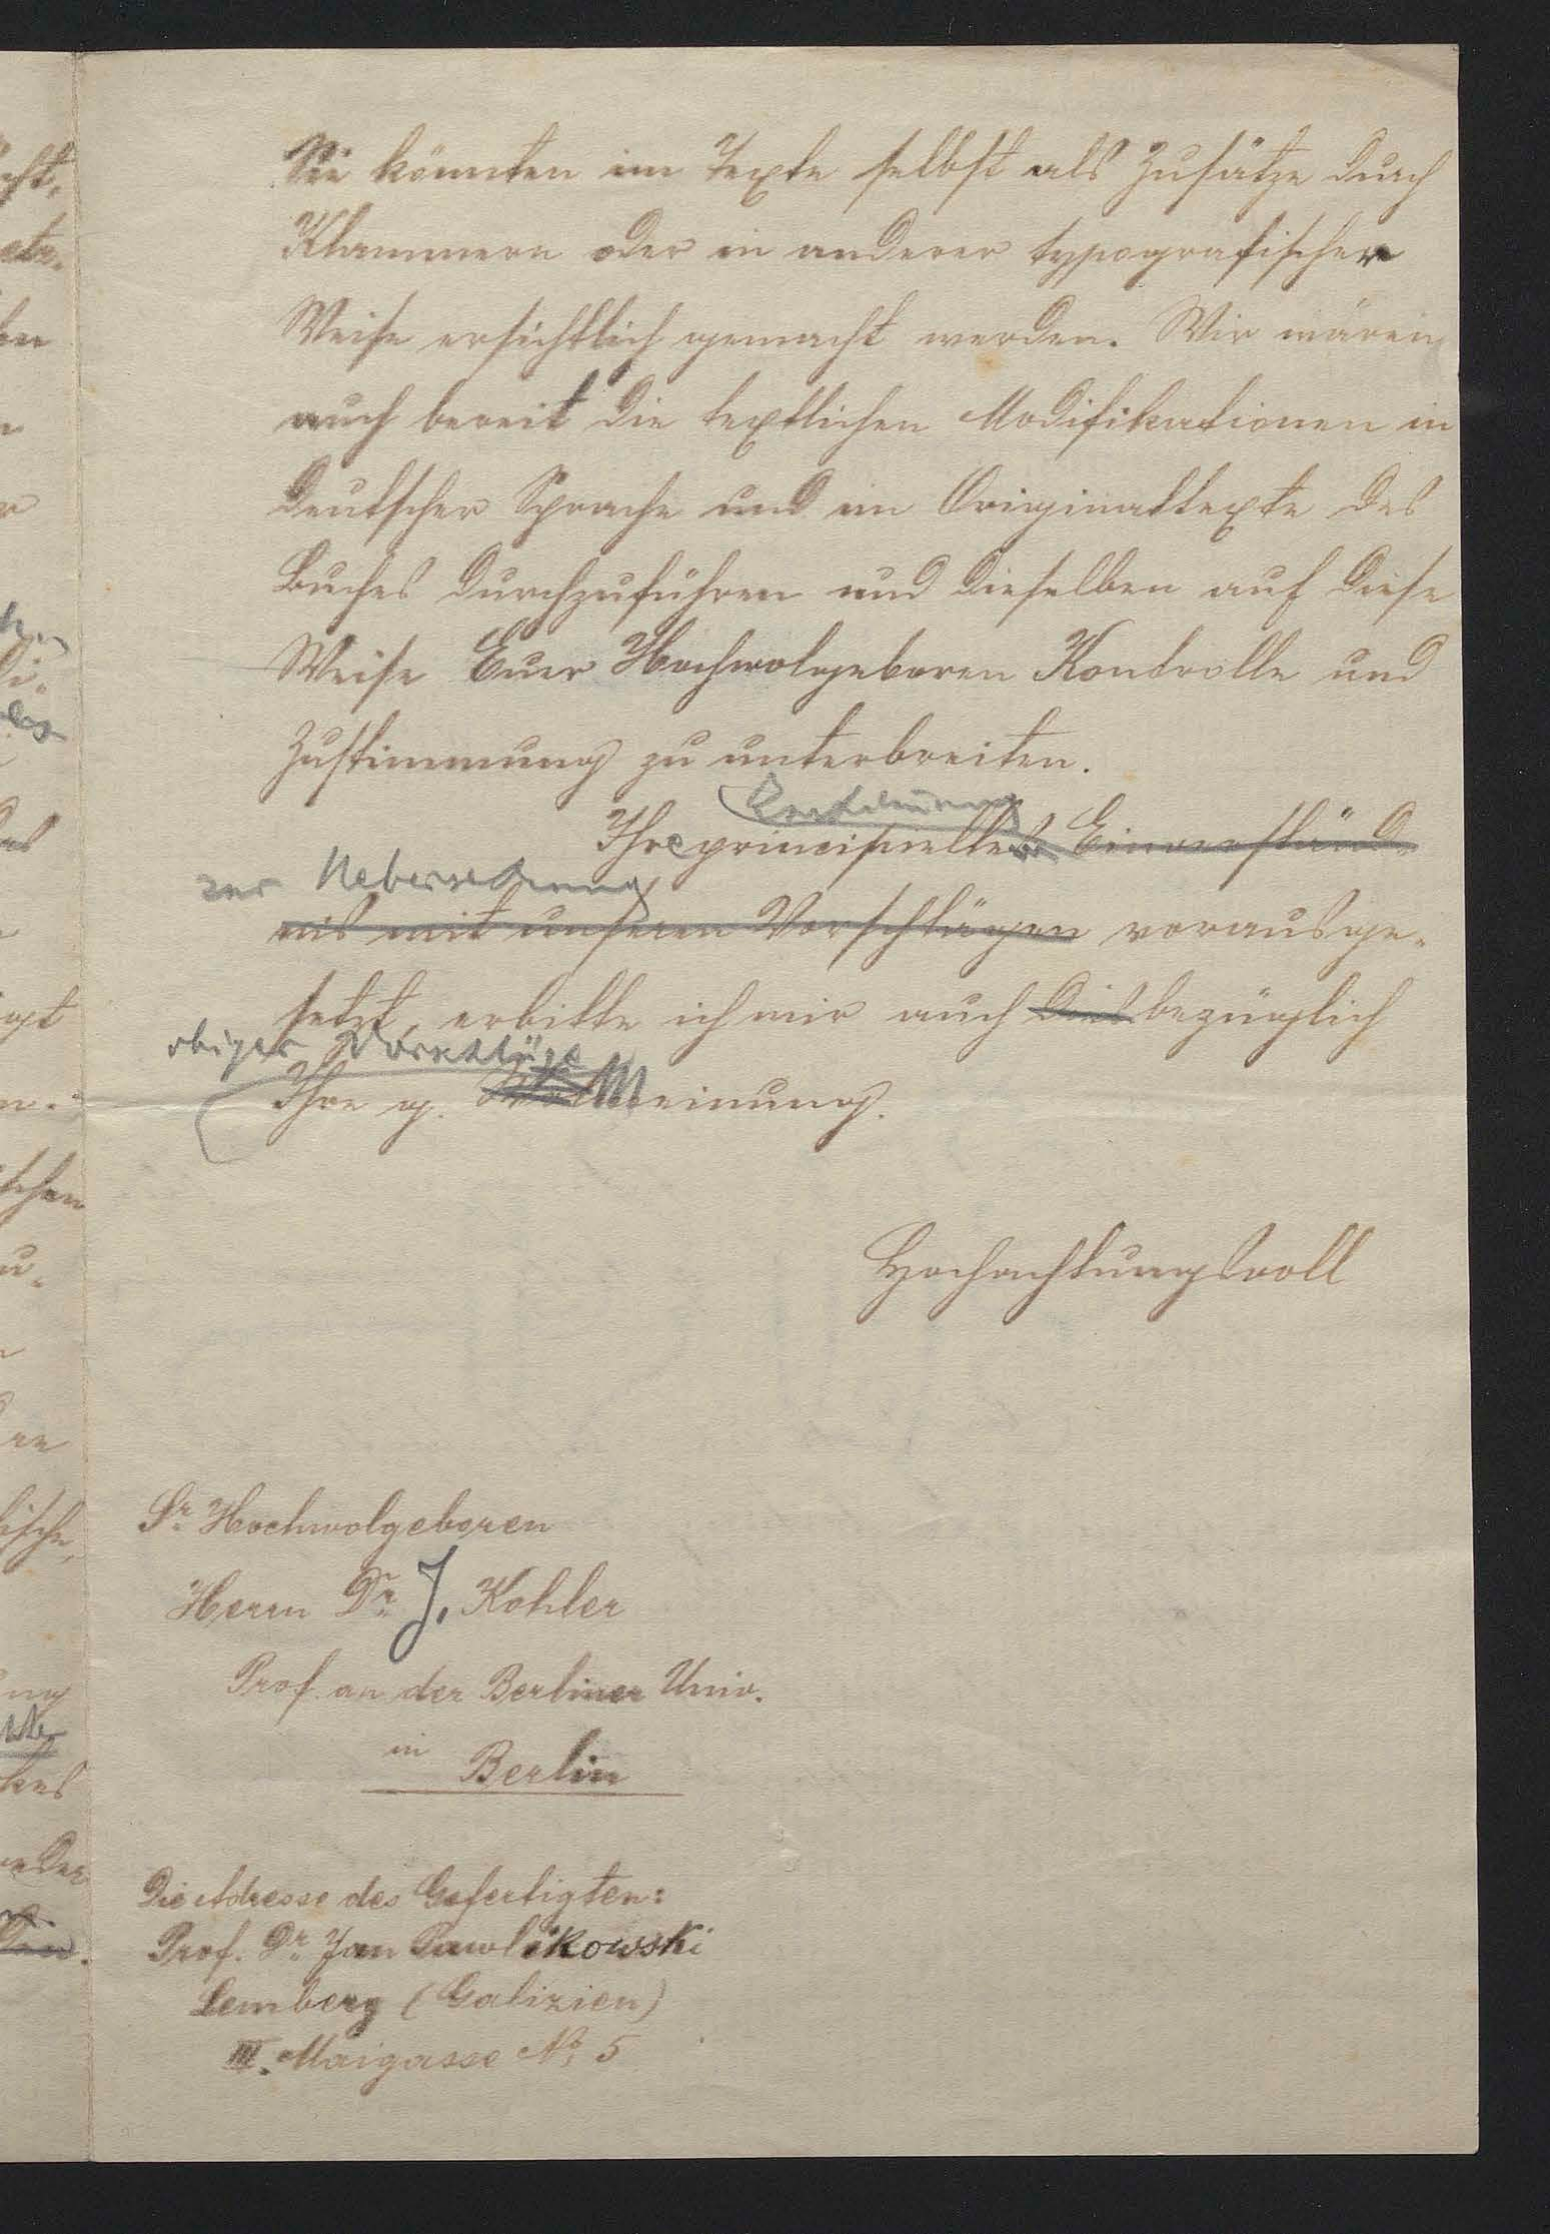 Sie könnten im Texte selbst als Zusätze durch
Klammern oder in anderer typografischer
Weise ersichtlich gemacht werden. Wir wären
auch bereit die textlichen Modifikationen in
deutscher Sprache und im Originaltexte des
Buches durchzuführen und dieselben auf diese
Weise Euer Hochwolgeboren Kontrolle und
Zustimmung zu unterbreiten.
Ihre principielle Einverständ-
zur Uebersetzung
nis mit unseren Vorschlägen vorausge-
setzt, erbitte ich mir auch dies bezüglich
obiger Vorschläge
Ihre g. Meinung.
Hochachtungsvoll
Sr Hochwolgeboren
Herrn Dr J. Kohler
Prof. an der Berliner Univ.
in Berlin
Die Adresse des Gefertigten:
Prof. Dr Jan Pawlikowski
Lemberg (Galizien)
III. Maigasse No 5